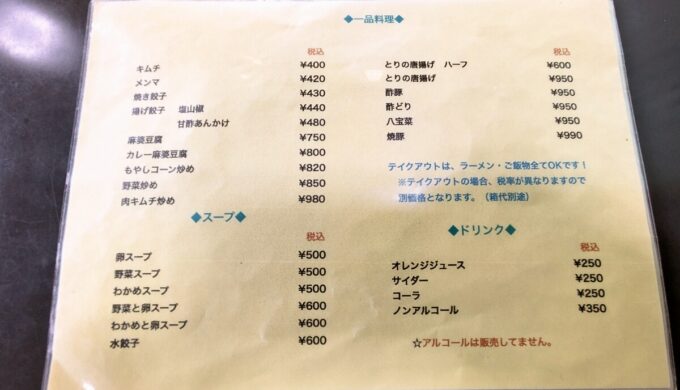 ◆一品料理◆
税込
キムチ ¥400
メンマ ¥420
焼き餃子 ¥430
揚げ餃子 塩山椒 ¥440
甘酢あんかけ ¥480
麻婆豆腐 ¥750
カレー麻婆豆腐 ¥800
もやしコーン炒め ¥820
野菜炒め ¥850
肉キムチ炒め ¥980
税込
とりの唐揚げ ハーフ ¥600
とりの唐揚げ ¥950
酢豚 ¥950
酢どり ¥950
八宝菜 ¥950
焼豚 ¥990
テイクアウトは、ラーメン・ご飯物全てOKです！
※テイクアウトの場合、税率が異なりますので
別価格となります。（箱代別途）
◆スープ◆
税込
卵スープ ¥500
野菜スープ ¥500
わかめスープ ¥500
野菜と卵スープ ¥600
わかめと卵スープ ¥600
水餃子 ¥600
◆ドリンク◆
税込
オレンジジュース ¥250
サイダー ¥250
コーラ ¥250
ノンアルコール ¥350
☆アルコールは販売してません。